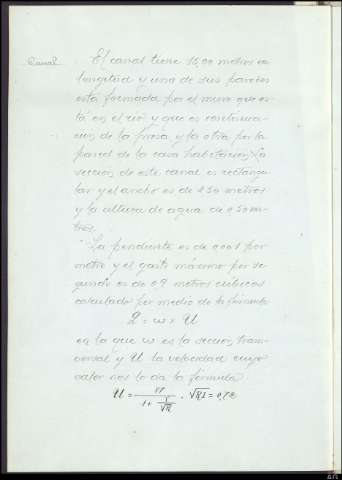 Canal
El canal tiene 15,00 metros en
longitud y una de sus paredes
está formada por el muro que es-
tá en el rio y que es continua-
cion de la presa y la otra por la
pared de la casa habitacion. La
seccion de este canal es rectangu-
lar y el ancho es de 2,50 metros
y la altura de agua de 0,50 me-
tros.
La pendiente es de 0,001 por
metro y el gasto máximo por se-
gundo es de 0,9 metros cúbicos
calculado por medio de la fórmula
Q = ω × U
en la que ω es la seccion trans-
versal y U la velocidad cuyo
valor nos lo da la fórmula
U = 87 / (1 + γ/√R) · √RI = 0,72